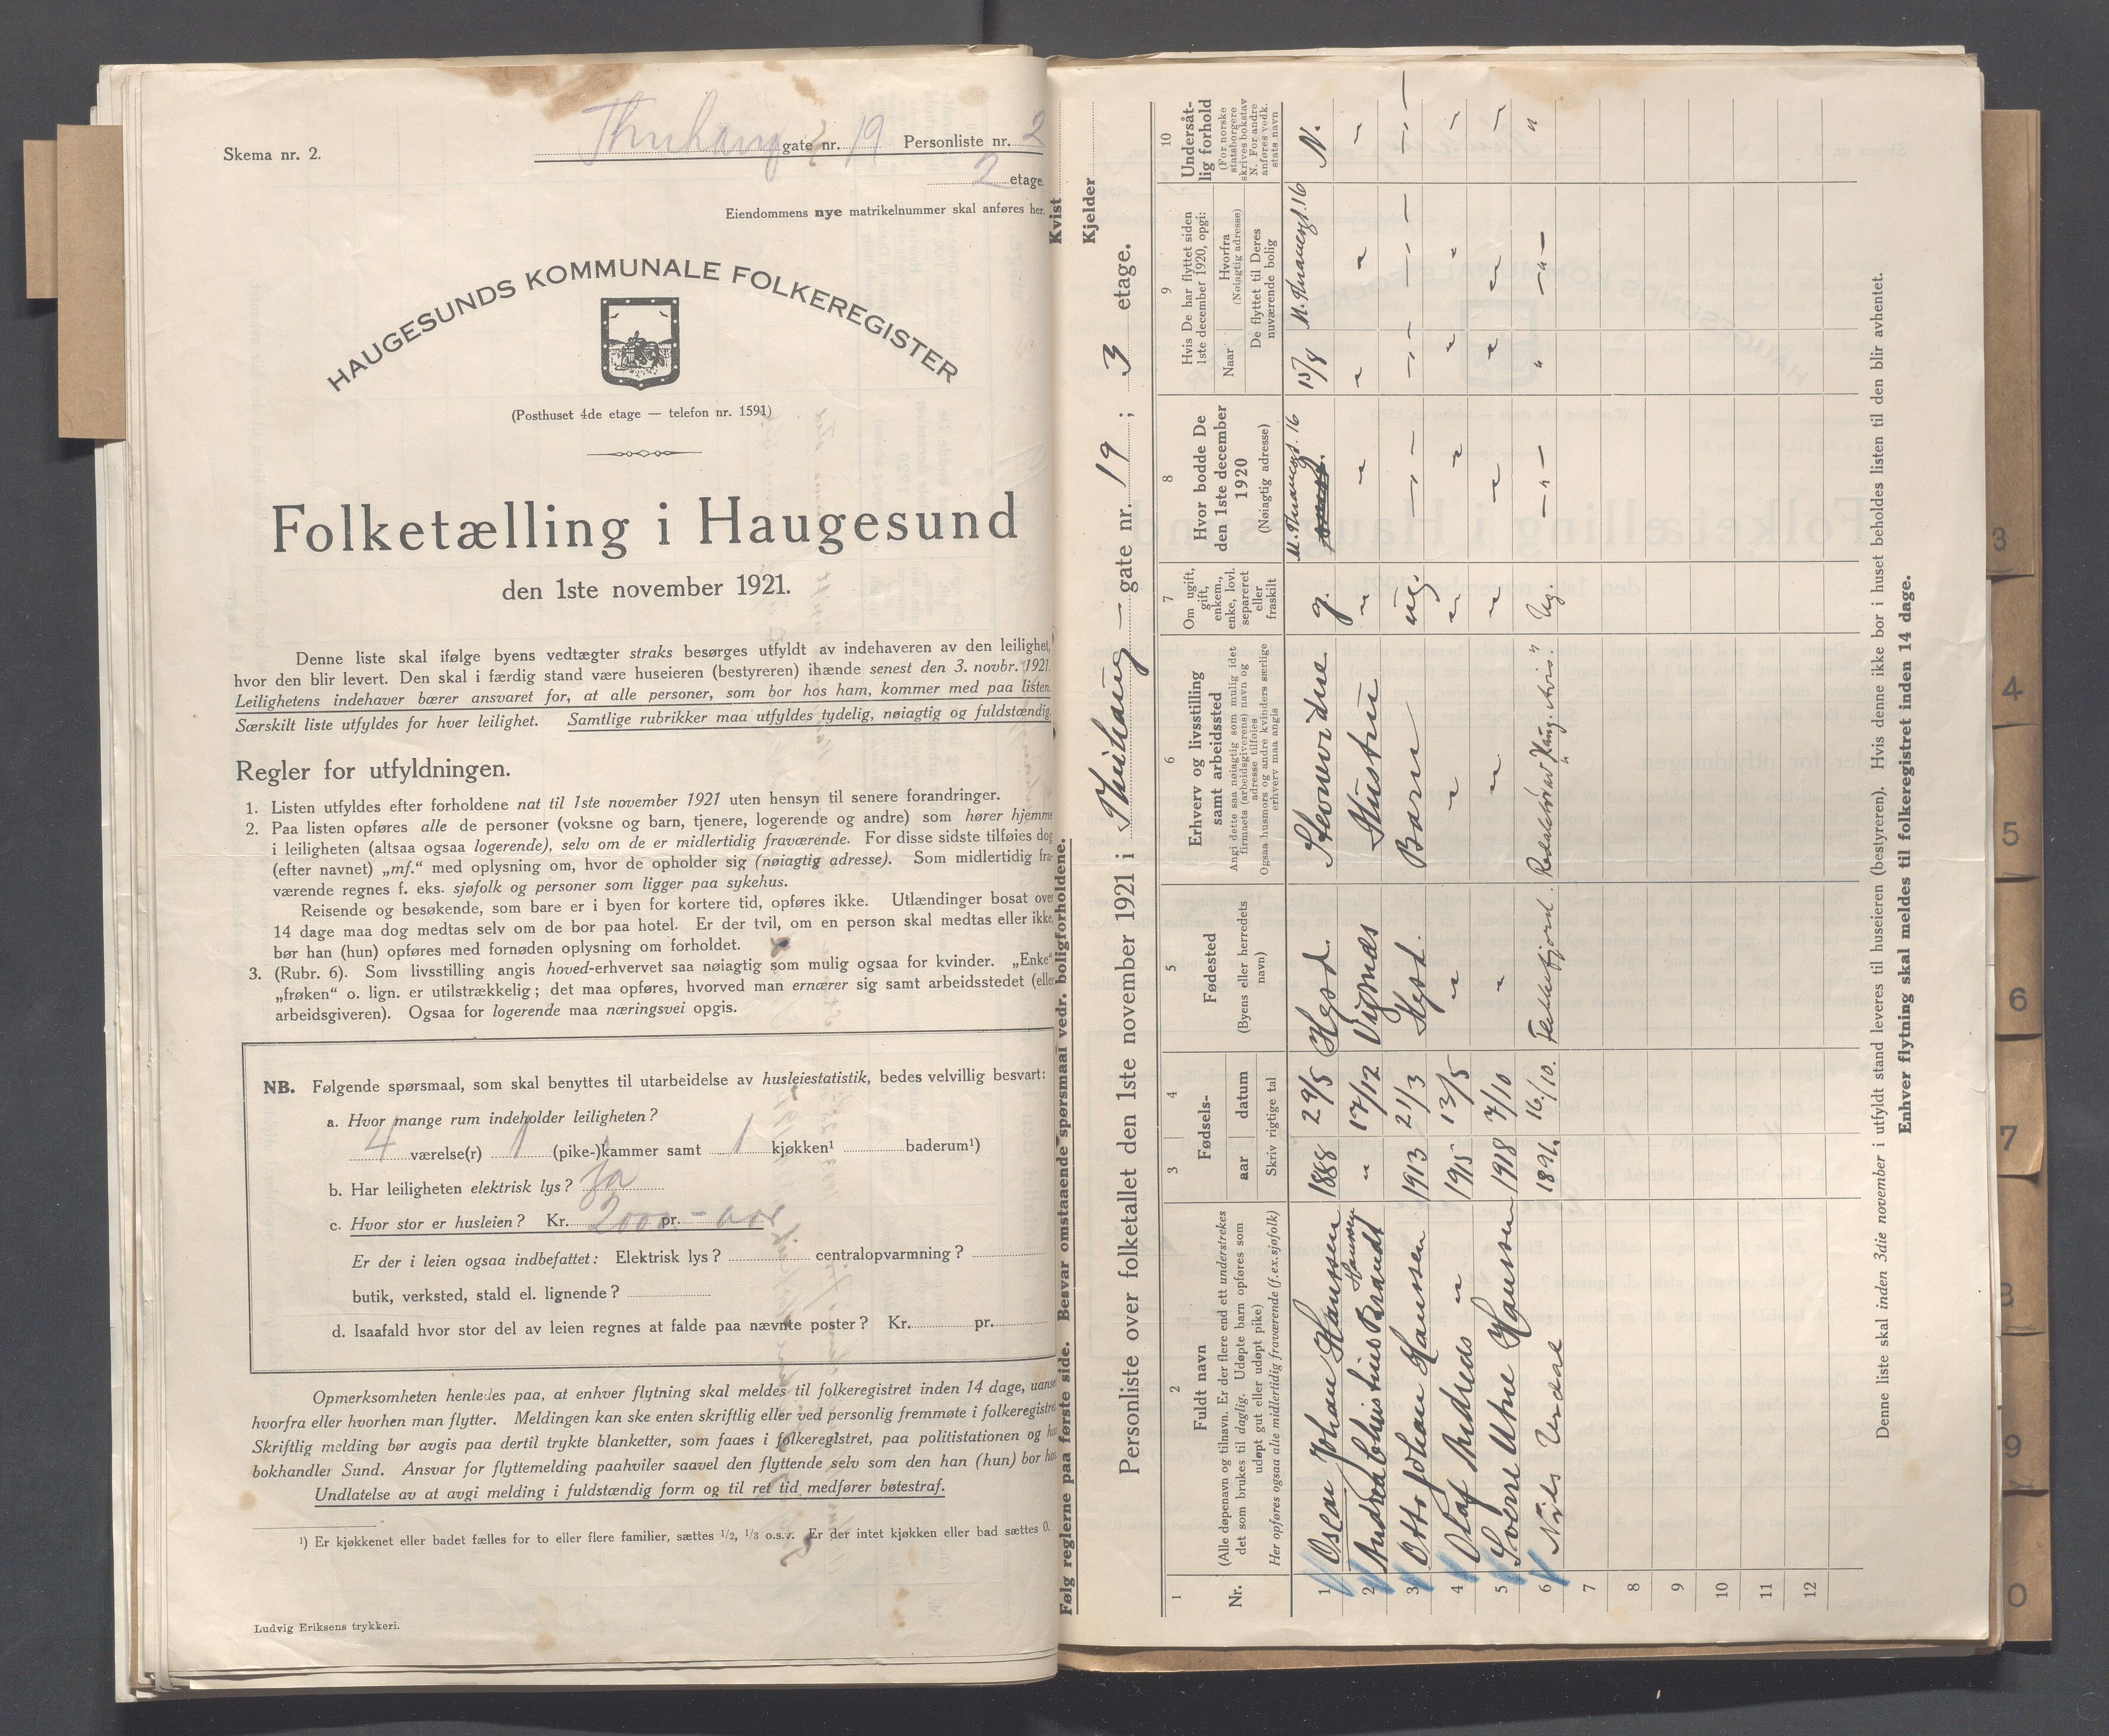 Skema nr. 2.
gate nr. 19 Personliste nr. 2
2 etage.
Eiendommens nye matrikelnummer skal anføres her.
HAUGESUNDS KOMMUNALE FOLKEREGISTER
(Posthuset 4de etage — telefon nr. 1591)
Folketælling i Haugesund
den 1ste november 1921.
Denne liste skal ifølge byens vedtægter straks besørges utfyldt av indehaveren av den leilighet,
hvor den blir levert. Den skal i færdig stand være huseieren (bestyreren) ihænde senest den 3. novbr. 1921.
Leilighetens indehaver bærer ansvaret for, at alle personer, som bor hos ham, kommer med paa listen.
Særskilt liste utfyldes for hver leilighet. Samtlige rubrikker maa utfyldes tydelig, nøiagtig og fuldstændig.
Regler for utfyldningen.
1. Listen utfyldes efter forholdene nat til 1ste november 1921 uten hensyn til senere forandringer.
2. Paa listen opføres alle de personer (voksne og barn, tjenere, logerende og andre) som hører hjemme
i leiligheten (altsaa ogsaa logerende), selv om de er midlertidig fraværende. For disse sidste tilføies dog
(efter navnet) „mf.“ med oplysning om, hvor de opholder sig (nøiagtig adresse). Som midlertidig fra-
værende regnes f. eks. sjøfolk og personer som ligger paa sykehus.
Reisende og besøkende, som bare er i byen for kortere tid, opføres ikke. Utlændinger bosat over
14 dage maa dog medtas selv om de bor paa hotel. Er der tvil, om en person skal medtas eller ikke,
bør han (hun) opføres med fornøden oplysning om forholdet.
3. (Rubr. 6). Som livsstilling angis hoved-erhvervet saa nøiagtig som mulig ogsaa for kvinder. „Enke“
„frøken“ o. lign. er utilstrækkelig; det maa opføres, hvorved man ernærer sig samt arbeidsstedet (eller
arbeidsgiveren). Ogsaa for logerende maa næringsvei opgis.
NB. Følgende spørsmaal, som skal benyttes til utarbeidelse av husleiestatistik, bedes velvillig besvart:
a. Hvor mange rum indeholder leiligheten?
4 værelse(r) 1 (pike-)kammer samt 1 kjøkken¹ baderum¹)
b. Har leiligheten elektrisk lys? Ja
c. Hvor stor er husleien? Kr. 2000.- pr. aar
Er der i leien ogsaa indbefattet: Elektrisk lys? centralopvarmning?
butik, verksted, stald el. lignende?
d. Isaafald hvor stor del av leien regnes at falde paa nævnte poster? Kr. pr.
Opmerksomheten henledes paa, at enhver flytning skal meldes til folkeregistret inden 14 dage, uanset
hvorfra eller hvorhen man flytter. Meldingen kan ske enten skriftlig eller ved personlig fremmøte i folkeregistret.
Skriftlig melding bør avgis paa dertil trykte blanketter, som faaes i folkeregistret, paa politistationen og hos
bokhandler Sund. Ansvar for flyttemelding paahviler saavel den flyttende selv som den han (hun) bor hos.
Undlatelse av at avgi melding i fuldstændig form og til ret tid medfører bøtestraf.
¹) Er kjøkkenet eller badet fælles for to eller flere familier, sættes 1/2, 1/3 o.s.v. Er der intet kjøkken eller bad sættes 0.
Ludvig Eriksens trykkeri.
Følg reglerne paa første side. Besvar omstaaende spørsmaal vedr. boligforholdene.
Kvist
Kjelder
Personliste over folketallet den 1ste november 1921 i gate nr. 19 ; 3 etage.
1 2 3 4 5 6 7 8 9 10
Nr.
Fuldt navn
(Alle døpenavn og tilnavn. Er der flere end ett understrekes
det som brukes til daglig. Udøpte barn opføres som
udøpt gut eller udøpt pike)
Her opføres ogsaa alle midlertidig fraværende (f.ex.sjøfolk)
Fødsels-
aar datum
Skriv rigtige tal
Fødested
(Byens eller herredets
navn)
Erhverv og livsstilling
samt arbeidssted
Angi dette saa nøiagtig som mulig idet
firmaets (arbeidsgiverens) navn og
adresse tilføies
Ogsaa husmors og andre kvinders særlige
erhverv maa angis
Om ugift,
gift,
enkem.,
enke, lovl.
separeret
eller
fraskilt
Hvor bodde De
den 1ste december
1920
(Nøiagtig adresse)
Hvis De har flyttet siden
1ste december 1920, opgi:
Naar
Hvorfra
(Nøiagtig adresse)
De flyttet til Deres
nuværende bolig
Undersåt-
lig forhold
(For norske
statsborgere
skrives bokstav
N. For andre
anføres vedk.
stats navn
1 Oscar Johan Hanssen 1888 29/5 Hgsd. g. 15/8 N.
2 Andrea Christine Brandt Hanssen " 17/12 Vigsnæs Hustru " " " " "
3 Otto Johan Hanssen 1913 21/3 Hgsd. Barn ug. — " — — " — — " — — " —
4 Olaf Andreas " 1915 13/5 " " " " " " "
5 Sverre Utne Hanssen 1918 7/10 " " " " " " "
6 Nils Undal 1896. 16./10. Flekkefjord. Ug. — " — " — " — "
7
8
9
10
11
12
Denne liste skal inden 3die november i utfyldt stand leveres til huseieren (bestyreren). Hvis denne ikke bor i huset beholdes listen til den blir avhentet.
Enhver flytning skal meldes til folkeregistret inden 14 dage.
3
4
5
6
7
8
9
0